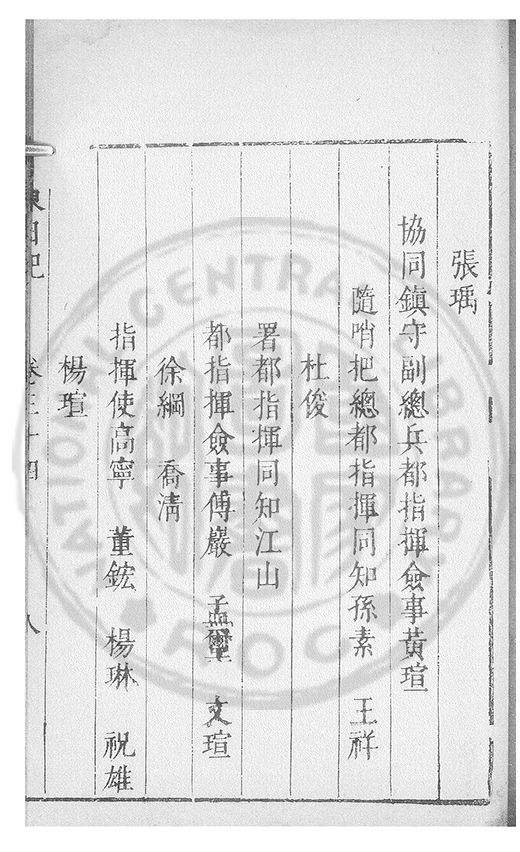 張瑀
協同鎮守副總兵都指揮僉事黃瑄
隨哨把總都指揮同知孫素　王祥
杜俊
署都指揮同知江山
都指揮僉事傅巖　孟璽　文瑄
徐綱　喬清
指揮使高寧　董鋐　楊琳　祝雄
楊瑄
卷三十四
八
CENTRAL LIBRARY